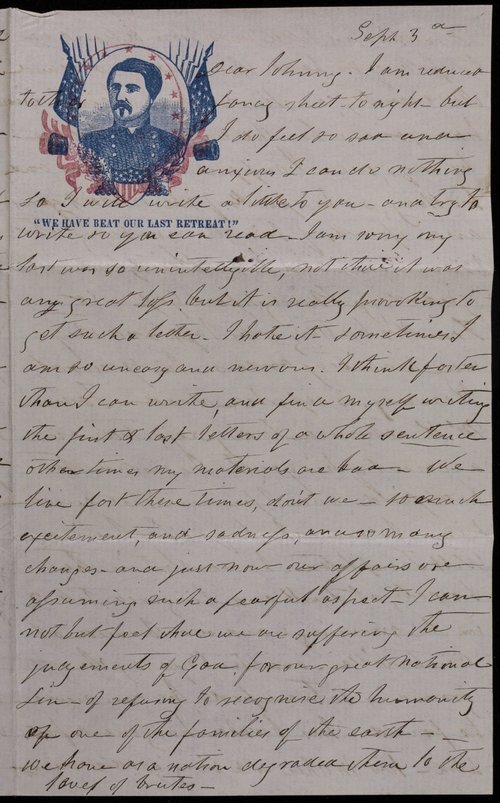 Sept 3d
Dear Johnny. I am reduced
to the fancy sheet to night - but
I do feel so sad and
anxious I can do nothing
so I will write a little to you - and try to
"WE HAVE BEAT OUR LAST RETREAT!"
write so you can read - I am sorry my
last was so unintelligible, not that it was
any great loss. but it is really provoking to
get such a letter. I hate it - sometimes I
am so uneasy and nervous. I think faster
than I can write, and find myself writing
the first & last letters of a whole sentence
other times my materials are bad - We
live fast these times, don't we - so much
excitement, and sadness, and so many
changes - and just now our affairs are
assuming such a fearful aspect - I can
not but feel that we are suffering the
judgements of God, for our great national
Sin - of refusing to recognise the humanity
of one of the families of the earth -
we have as a nation degraded them to the
level of brutes -